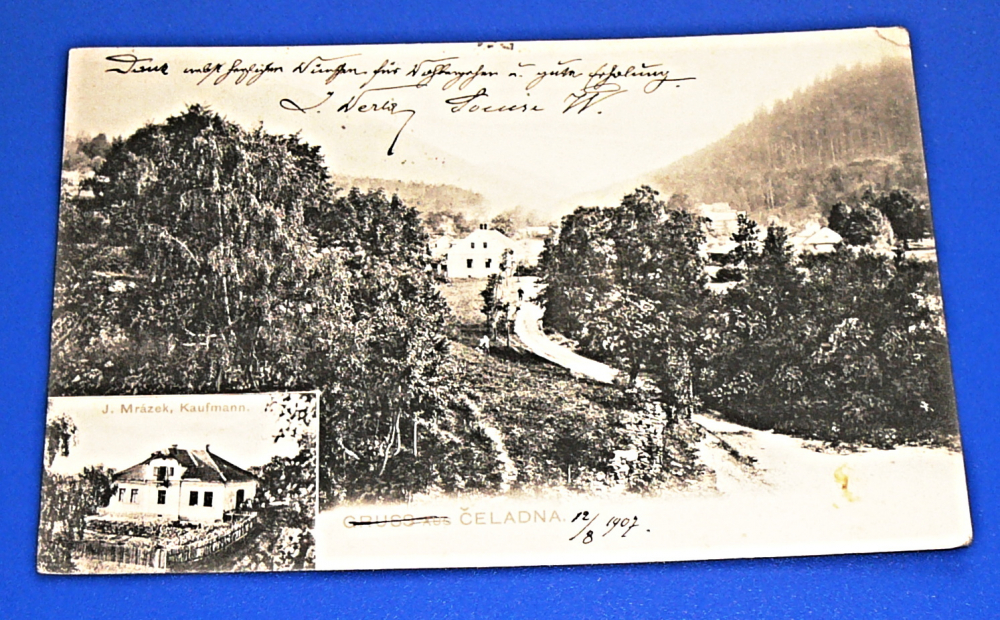 Dank nebst herzlichen Wünschen für Wohlergehen u. gute Erholung
Louise W.
J. Mrázek, Kaufmann.
GRUSS AUS ČELADNA. 12/8 1907.